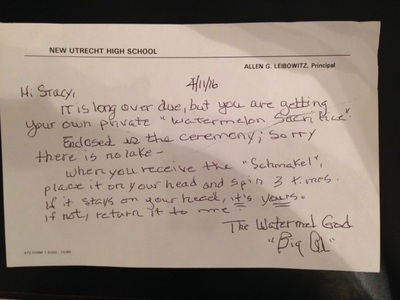 NEW UTRECHT HIGH SCHOOL
ALLEN G. LEIBOWITZ, Principal
7/11/16
Hi Stacy,
It is long over due, but you are getting
your own private "Watermelon Sacrifice".
Enclosed is the ceremony; sorry
there is no lake-
When you receive the "Schmakel",
place it on your head and spin 3 times.
If it stays on your head, it's yours.
If not, return it to me!
The Watermel God
"Big